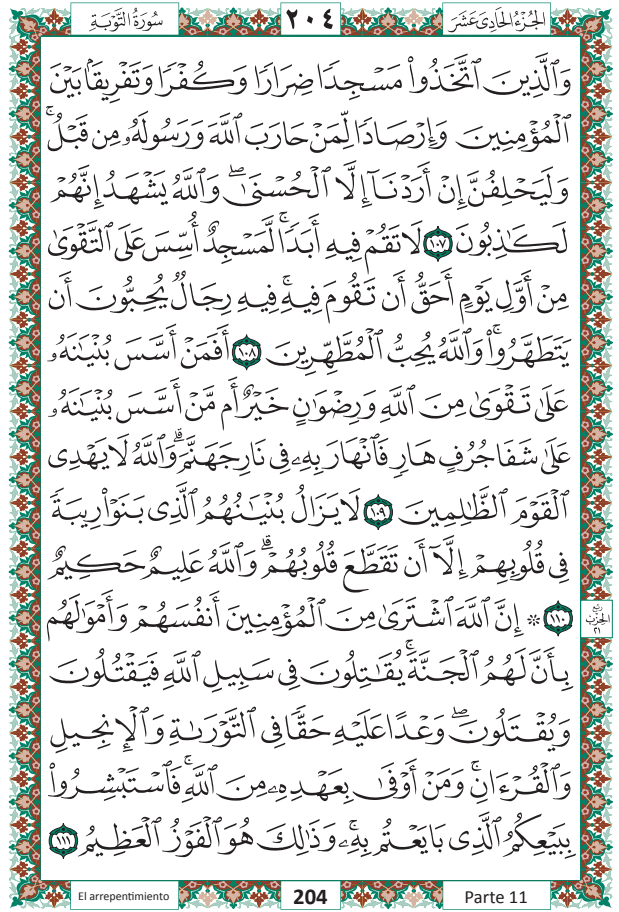 سُورَةُ التَّوْبَةِ ٢٠٤ الجُزْءُ الحَادِي عَشَرَ
وَٱلَّذِينَ ٱتَّخَذُوا۟ مَسْجِدًا ضِرَارًا وَكُفْرًا وَتَفْرِيقًۢا بَيْنَ
ٱلْمُؤْمِنِينَ وَإِرْصَادًا لِّمَنْ حَارَبَ ٱللَّهَ وَرَسُولَهُۥ مِن قَبْلُ ۚ
وَلَيَحْلِفُنَّ إِنْ أَرَدْنَآ إِلَّا ٱلْحُسْنَىٰ ۖ وَٱللَّهُ يَشْهَدُ إِنَّهُمْ
لَكَـٰذِبُونَ ١٠٧ لَا تَقُمْ فِيهِ أَبَدًا ۚ لَّمَسْجِدٌ أُسِّسَ عَلَى ٱلتَّقْوَىٰ
مِنْ أَوَّلِ يَوْمٍ أَحَقُّ أَن تَقُومَ فِيهِ ۚ فِيهِ رِجَالٌ يُحِبُّونَ أَن
يَتَطَهَّرُوا۟ ۚ وَٱللَّهُ يُحِبُّ ٱلْمُطَّهِّرِينَ ١٠٨ أَفَمَنْ أَسَّسَ بُنْيَـٰنَهُۥ
عَلَىٰ تَقْوَىٰ مِنَ ٱللَّهِ وَرِضْوَٰنٍ خَيْرٌ أَم مَّنْ أَسَّسَ بُنْيَـٰنَهُۥ
عَلَىٰ شَفَا جُرُفٍ هَارٍ فَٱنْهَارَ بِهِۦ فِى نَارِ جَهَنَّمَ ۗ وَٱللَّهُ لَا يَهْدِى
ٱلْقَوْمَ ٱلظَّـٰلِمِينَ ١٠٩ لَا يَزَالُ بُنْيَـٰنُهُمُ ٱلَّذِى بَنَوْا۟ رِيبَةً
فِى قُلُوبِهِمْ إِلَّآ أَن تَقَطَّعَ قُلُوبُهُمْ ۗ وَٱللَّهُ عَلِيمٌ حَكِيمٌ
١١٠ ۞ إِنَّ ٱللَّهَ ٱشْتَرَىٰ مِنَ ٱلْمُؤْمِنِينَ أَنفُسَهُمْ وَأَمْوَٰلَهُم
رُبْعُ الحِزْبِ ٢١
بِأَنَّ لَهُمُ ٱلْجَنَّةَ ۚ يُقَـٰتِلُونَ فِى سَبِيلِ ٱللَّهِ فَيَقْتُلُونَ
وَيُقْتَلُونَ ۖ وَعْدًا عَلَيْهِ حَقًّا فِى ٱلتَّوْرَىٰةِ وَٱلْإِنجِيلِ
وَٱلْقُرْءَانِ ۚ وَمَنْ أَوْفَىٰ بِعَهْدِهِۦ مِنَ ٱللَّهِ ۚ فَٱسْتَبْشِرُوا۟
بِبَيْعِكُمُ ٱلَّذِى بَايَعْتُم بِهِۦ ۚ وَذَٰلِكَ هُوَ ٱلْفَوْزُ ٱلْعَظِيمُ ١١١
El arrepentimiento 204 Parte 11